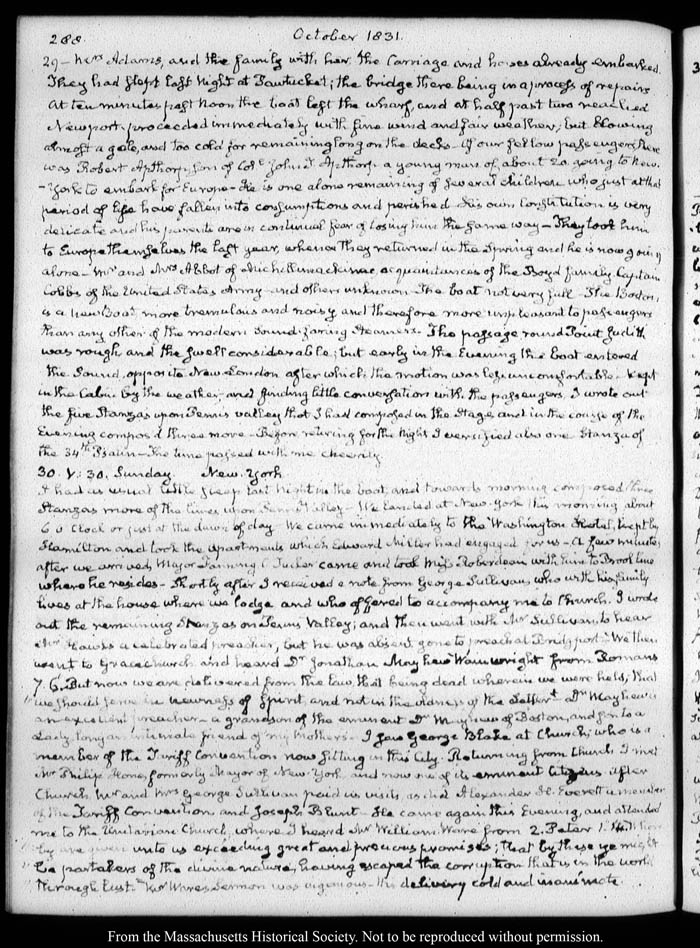 288. October 1831.
29 – Mrs Adams, and the family with her the Carriage and horses already embarked.
They had slept last Night at Pawtucket; the bridge there being in a process of repairs
At ten minutes past Noon the boat left the wharf, and at half past two reached
Newport, proceeded immediately with fine wind and fair weather, but blowing
almost a gale, and too cold for remaining long on the decks – Of our fellow passengers, there
was Robert Apthorp, son of Coll John T. Apthorp a young man of about 20 going to New-
-York to embark for Europe – He is one alone remaining of several children who just at that
period of life have fallen into consumptions and perished His own Constitution is very
delicate and his parents are in continual fear of losing him the same way – They took him
to Europe themselves the last year, whence they returned in the Spring and he is now going
alone – Mr and Mrs Abbot of Michillimackinac, acquaintances of the Boyd family Captain
Cobbs of the United States Army and others unknown The boat not very full – The Boston,
is a new Boat more tremulous and noisy and therefore more unpleasant to passengers
than any other of the modern Sound-faring Steamers. The passage round Point Judith
was rough and the swell considerable; but early in the Evening the boat entered
the Sound, opposite New London after which the motion was less uncomfortable – Kept
in the Cabin by the weather, and finding little conversation with the passengers, I wrote out
the five Stanzas upon Dennis valley that I had composed in the Stage and in the course of the
Evening composed three more – Before retiring for the Night I versified also one Stanza of
the 34th Psalm – The time passed with me cheerily.
30. V: 30. Sunday New-York
I had as usual little sleep last Night in the boat, and towards morning composed three
Stanzas more of the lines upon Valley – We landed at New-York this morning about
6 O'Clock or just at the dawn of day We came immediately to the Washington Hotel, kept by
Hamilton and took the apartments which Edward Miller had engaged for us – A few minutes
after we arrived, Major Fanning C Tucker came and took Miss Roberdeau with him to Brookline
where he resides – Shortly after I received a note from George Sullivan, who with his family
lives at the house where we lodge and who offered to accompany me to Church. I wrote
out the remaining Stanzas on Valley; and then went with Mr Sullivan, to hear
Mr Hawks a celebrated preacher, but he was absent gone to preach at Bridgeport: We then
went to Grace church and heard Dr Jonathan Mayhew Wainwright from Romans
7. 6. But now we are delivered from the law, that being dead wherein we were held, that
we should serve in newness of Spirit, and not in the oldness of the letter Dr Mayhew is
an excellent preacher – a grandson of the eminent Dr Mayhew of Boston, and son to a
Lady, long an intimate friend of my Mothers – I saw George Blake at Church, who is a
member of the Tariff Convention now sitting in this City. Returning from Church I met
Mr Philip Hone, formerly Mayor of New-York and now one of its eminent Citizens After
Church Mr and Mrs George Sullivan paid us visits, as did Alexander H. Everett a member
of the Tariff Convention and Joseph Blunt – He came again this Evening, and attended
me to the Unitarian Church, where I heard Mr William Ware from 2. Peter 1. 4.
by are given unto us exceeding great and precious promises; that by these ye might
be partakers of the divine nature, having escaped the corruption that is in the world
through lust. Mr Ware's Sermon was ingenious – His delivery cold and inanimate.
From the Massachusetts Historical Society. Not to be reproduced without permission.